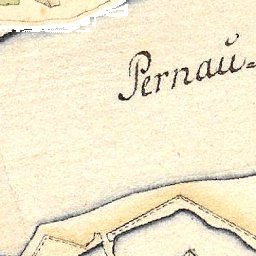 Pernaŭ-